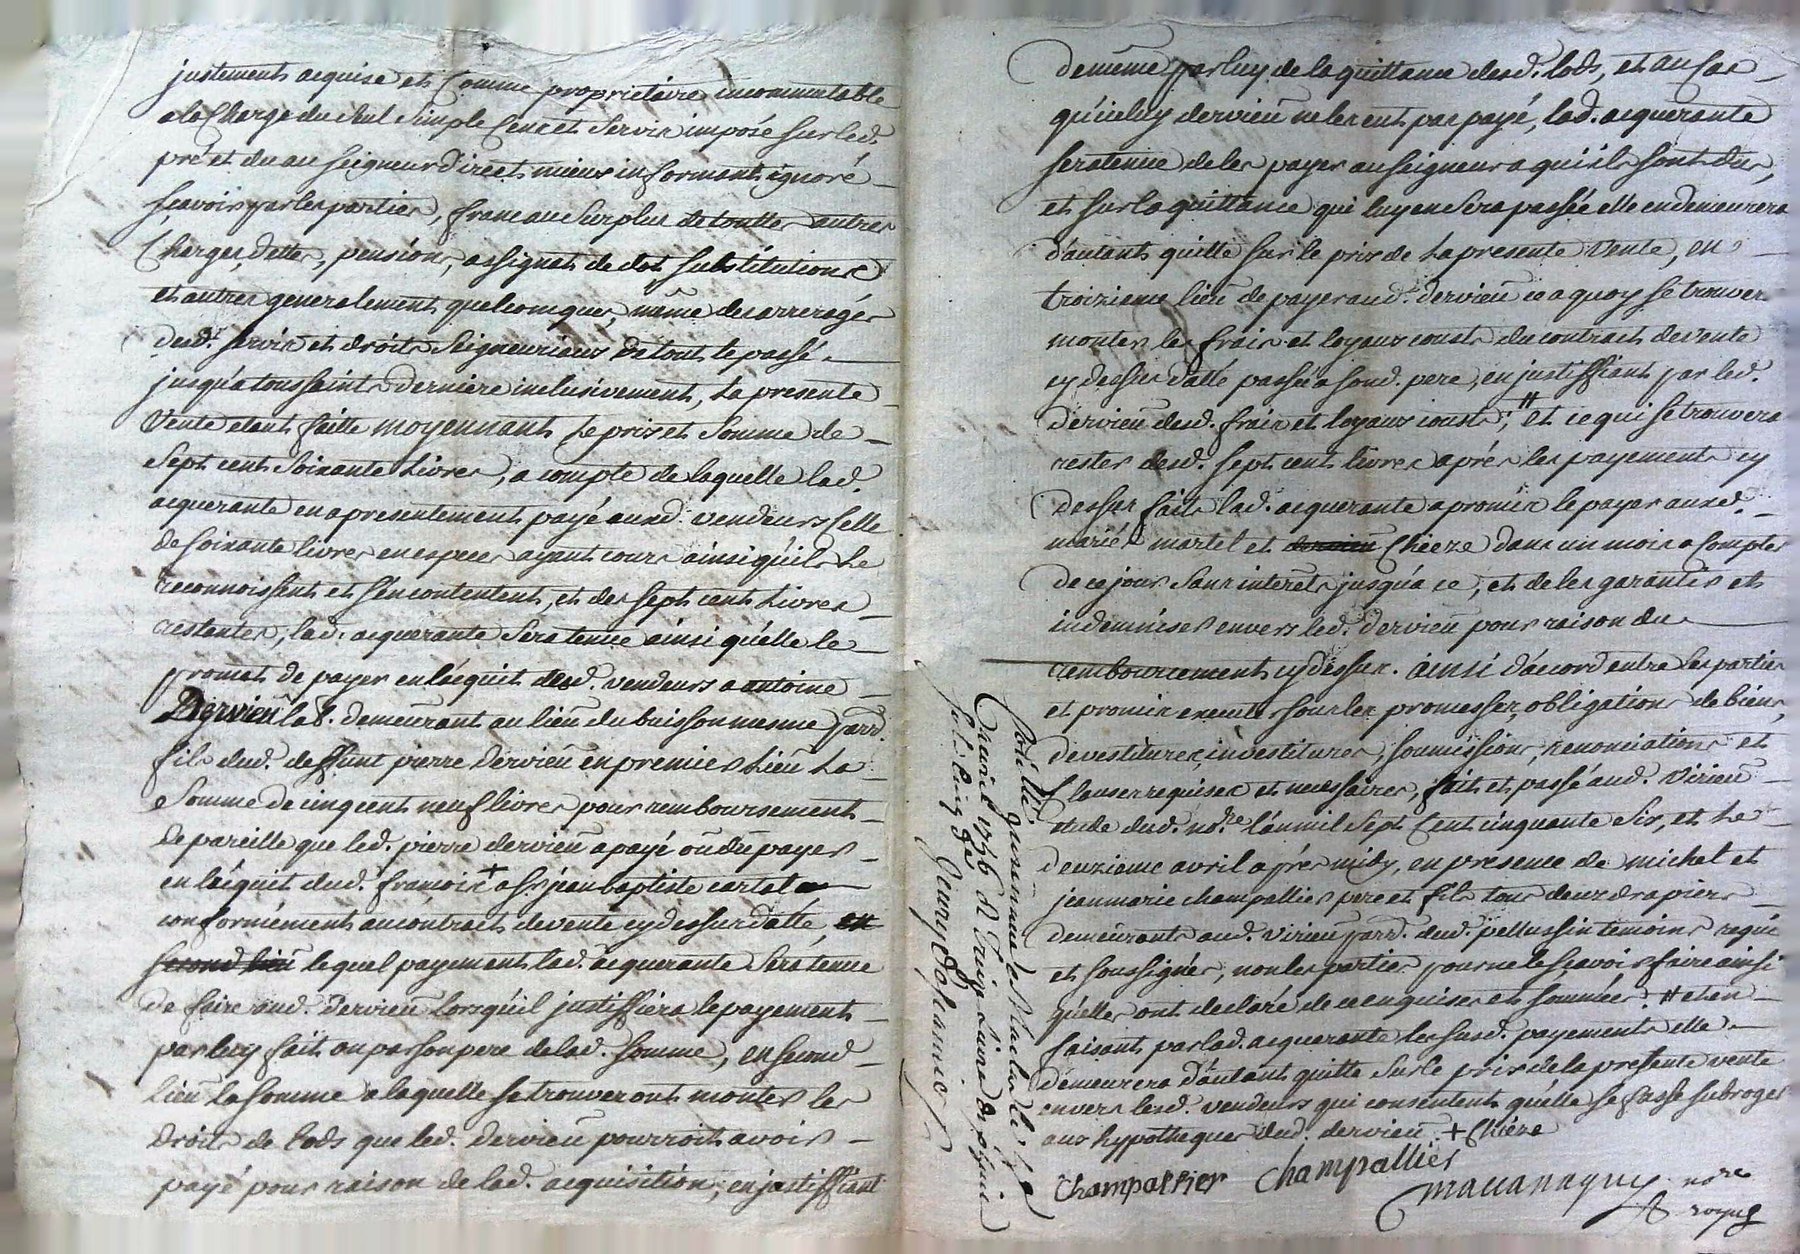 justement acquise et comme proprietaire incommutable
a la Charge du seul simple Cens et servis imposé sur led.
pré et du au seigneur direct mieux informant ignoré
sçavoir par les parties, franc au surplus de toutte autres
Charges, dettes, pension, assignats de dot substitutions
et autres generalement quelconques, même des arrerages
desd. servis et droits seigneuriaux de tout le passé
jusqu'a toussaints derniere inclusivement, La presente
Vente etant faitte moyennant Le prix et somme de
Sept cent soixante Livres, a compte de laquelle lad.
acquerante en a presentement payé auxd. vendeurs Celle
de soixante livres en especes ayant cours ainsi qu'ils Le
reconnoissent et s'en contentent, et des sept cent Livres
restantes, lad. acquerante sera tenue ainsi qu'elle le
promet de payer en l'acquit desd. vendeurs a antoine
Dervieu lab. demeurant au lieu du buisson mesme parr.
fils dud. deffunt pierre Dervieu en premier Lieu La
somme de cinq cent neuf livres pour remboursement
de pareille que led. pierre dervieu a payé ou dû payer
en l'acquit dud. françois + a sr. jean baptiste cartal
conformément au contract de vente cy dessus datté, en
second lieu lequel payement lad. acquerante sera tenue
de faire aud. Dervieu Lorsqu'il justiffiera le payement
par luy fait ou par son pere de lad. somme, en second
lieu la somme a laquelle se trouveront monter les
droits de Lods que led. Dervieu pourroit avoir
payé pour raison de lad. acquisition, en justiffiant
de même par luy de la quittance desd. lods, et au cas
qu'icelluy dervieu ne les eut pas payé, lad. acquerante
sera tenue de les payer au seigneur a qui ils sont dus,
et sur la quittance qui luy en sera passée elle en demeurera
d'autant quitte sur le prix de La presente Vente, en
troizieme lieu de payer aud. dervieu ce a quoy se trouver
monter les frais et loyaux coust du contract de vente
cy dessus datté passé a sond. pere, en justiffiant par led.
Dervieu desd. frais et loyaux coust, # et ce qui se trouvera
rester desd. sept cent livres aprés les payements cy
dessus fait lad. acquerante a promis le payer auxd.
mariés martel et dervieu Chieze dans un mois a Compter
de ce jour sans interets jusqu'a ce, et de les garantir et
indemniser envers led. Dervieu pour raison du
rembourcement cy dessus. ainsi d'accord entre les parties
et promis executer sous les promesses, obligations de biens,
devestitures, investitures, soumissions, renonciations et
Clauses requises et necessaires, fait et passé aud. Virieu
etude dud. nore. l'an mil Sept Cent cinquante Six, et Le
deuxieme avril aprés midy, en presence de michel et
jean marie champallier pere et fils tous deux drapiers
demeurants aud. Virieu parr. dud. pellussin temoins requis
et soussignés, non les parties pour ne le sçavoir faire ainsi
qu'elles ont declaré de ce enquises et sommées. # et en
faisant par lad. acquerante les susd. payements elle
demeurera d'autant quitte sur le prix de la presente vente
envers lesd. vendeurs qui consentent qu'elle se fasse subroger
aux hypotheques dud. dervieu. + Chieze
Champallier Champallier
Mavanaguy nore
royal